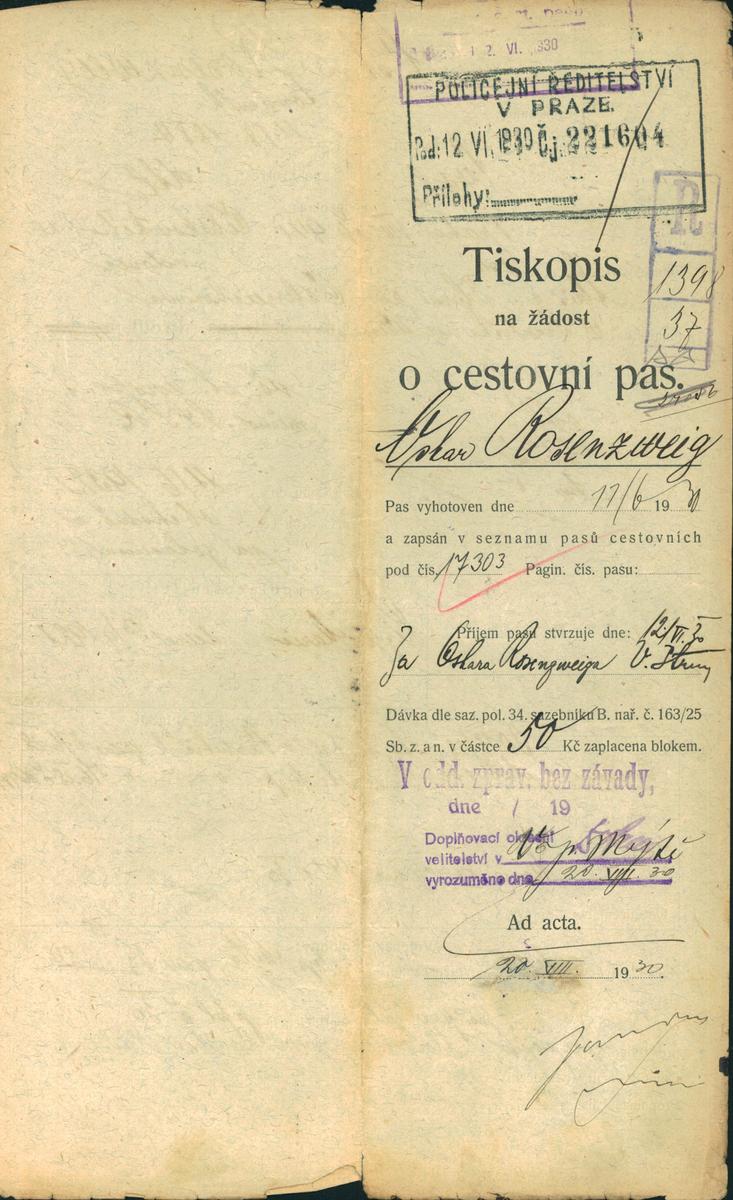 2. VI. 1930
POLICEJNÍ ŘEDITELSTVÍ
V PRAZE.
Pod: 12 VI. 1930 Čj. 221604
Přílohy:
R
1398
37
Tiskopis
na žádost
o cestovní pas.
Oskar Rosenzweig
Pas vyhotoven dne 11/6 1930
a zapsán v seznamu pasů cestovních
pod čís. 17303 Pagin. čís. pasu:
Příjem pasu stvrzuje dne: 12/VI. 30
Za Oskara Rosenzweiga V.
Dávka dle saz. pol. 34. sazebníku B. nař. č. 163/25
Sb. z. a n. v částce 50 Kč zaplacena blokem.
V odd. zprav. bez závady,
dne / 19
Doplňovací okresní
velitelství v Vys. Mýtě
vyrozuměno dne 20. VIII. 30
Ad acta.
20. VIII. 1930.